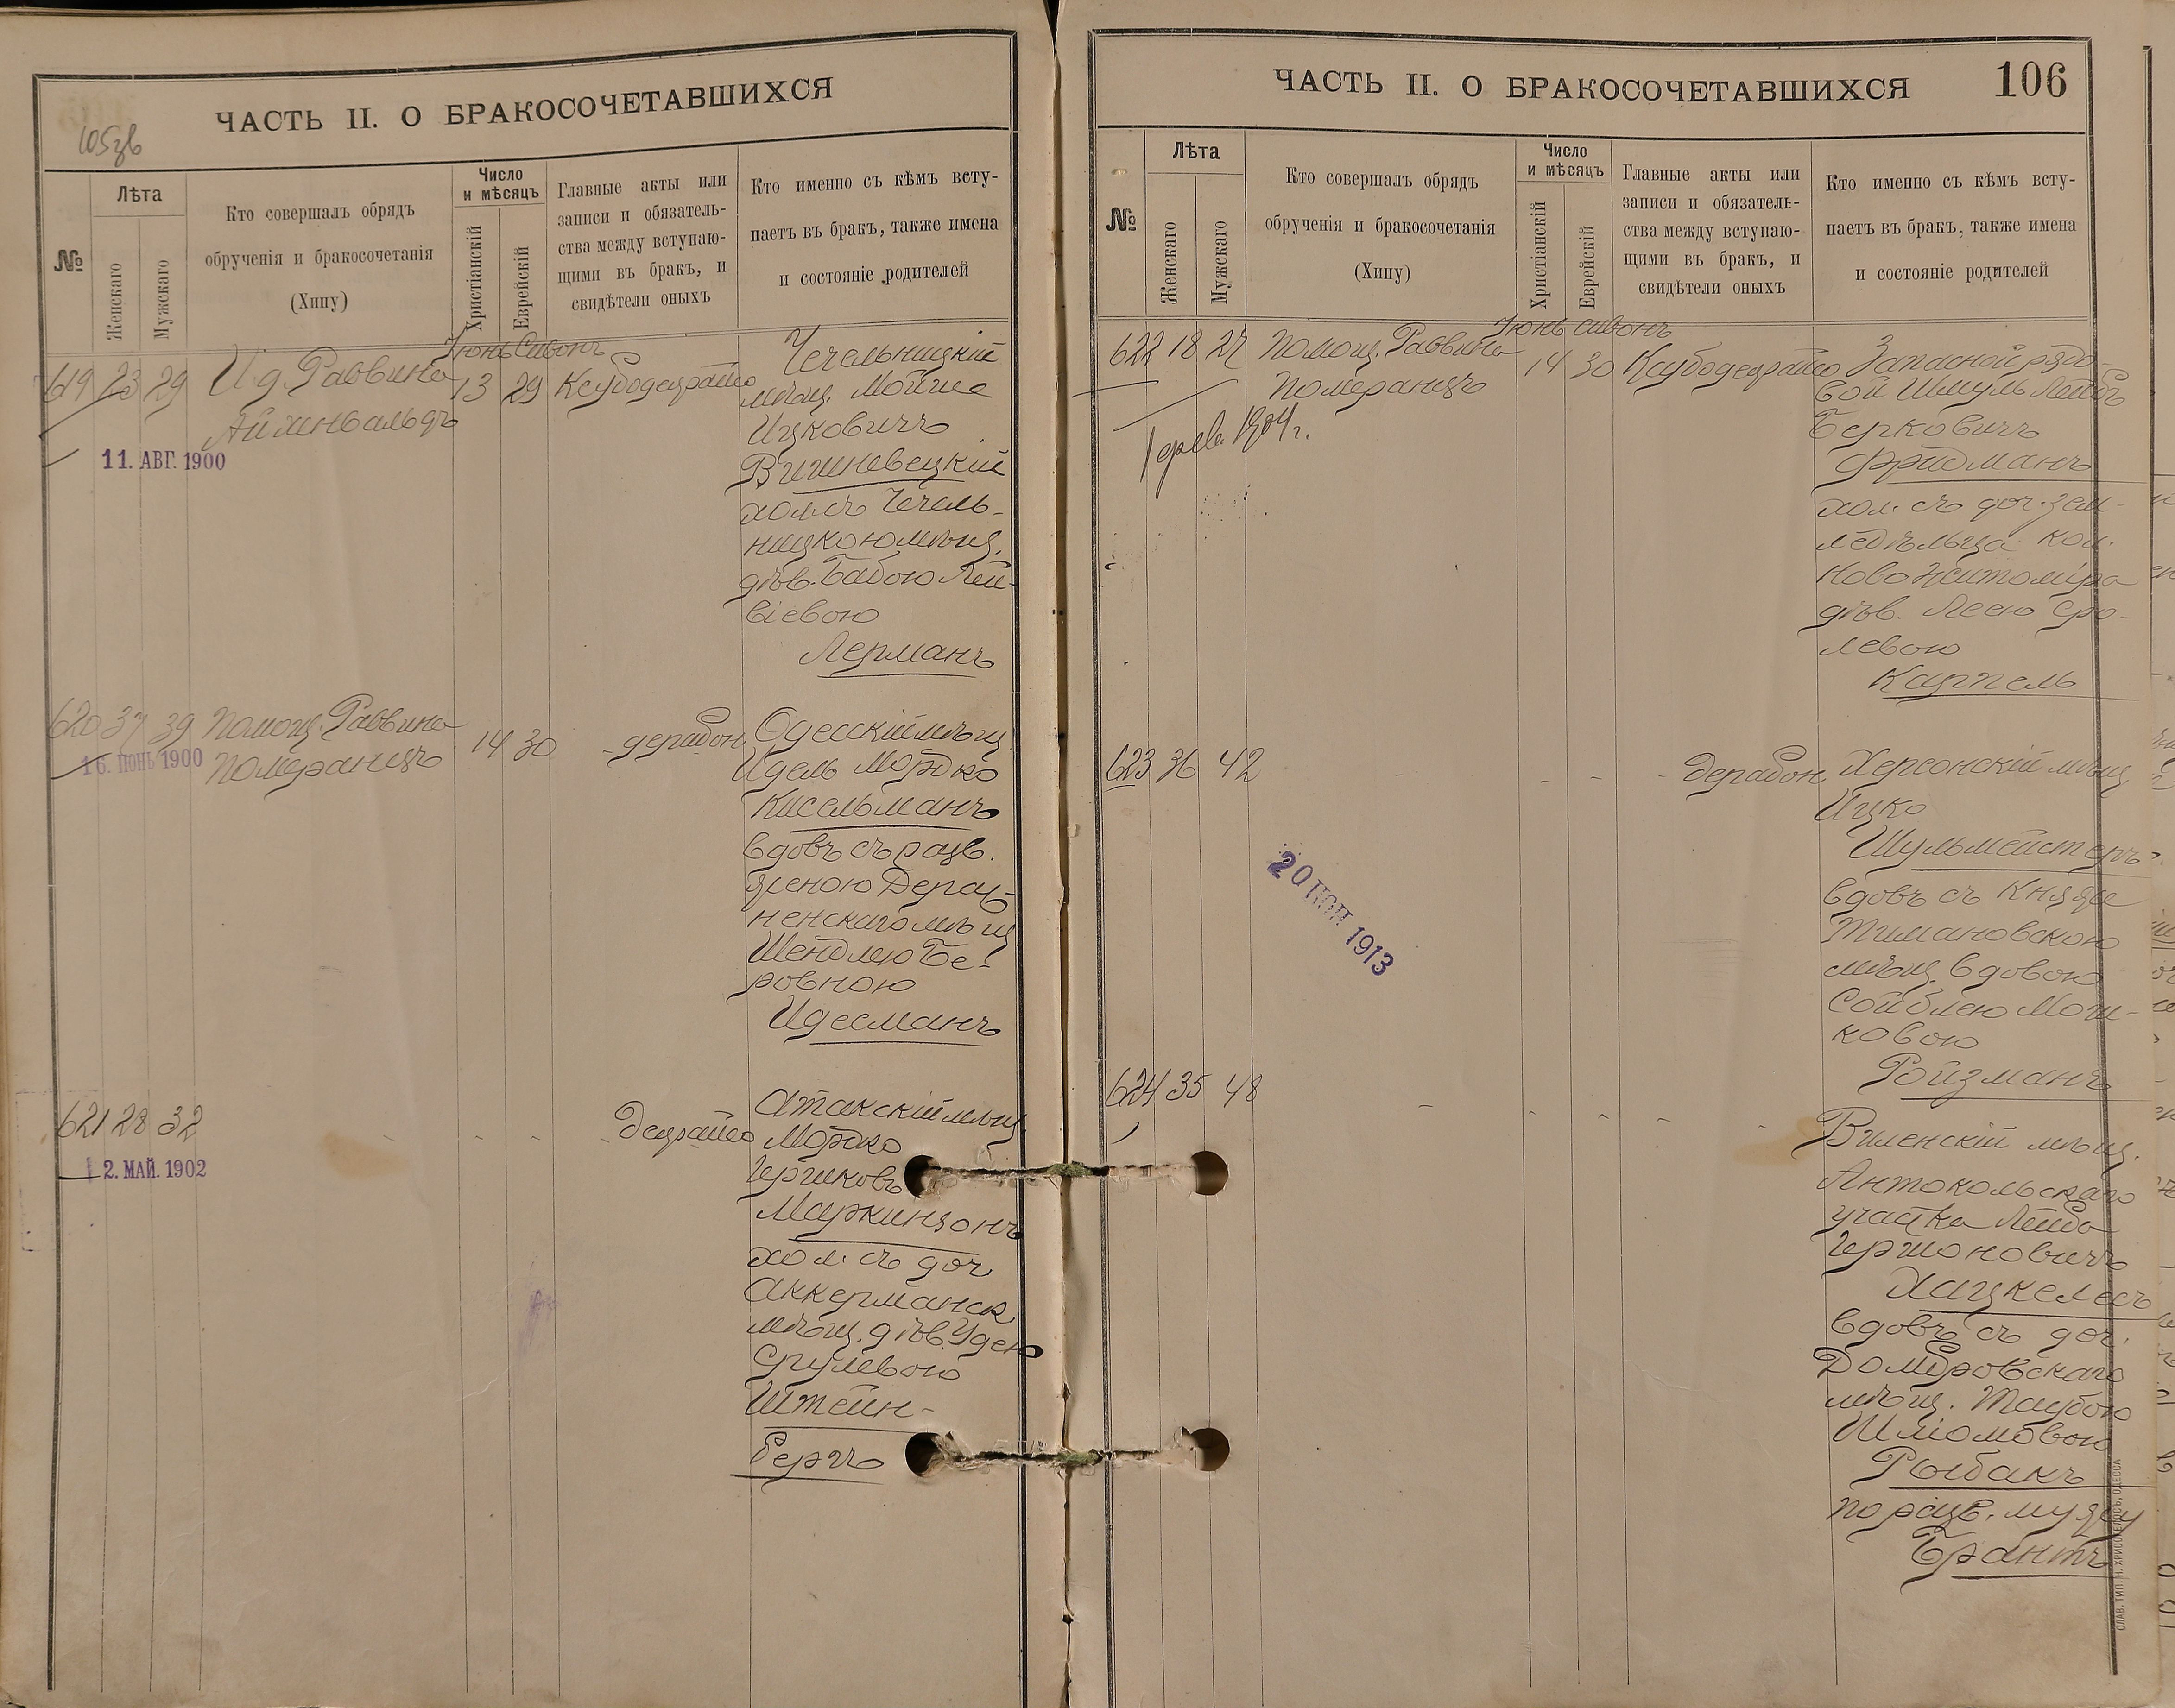 ЧАСТЬ II. О БРАКОСОЧЕТАВШИХСЯ
105зв
№
Лѣта
Женскаго
Мужскаго
Кто совершалъ обрядъ
обрученія и бракосочетанія
(Хипу)
Число
и мѣсяцъ
Христіанскій
Еврейскій
Главные акты или
записи и обязатель-
ства между вступаю-
щими въ бракъ, и
свидѣтели оныхъ
Кто именно съ кѣмъ всту-
паетъ въ бракъ, также имена
и состояніе родителей
Іюнь Сивонъ
619 23 29 И. д. Раввина 13 29 Ксубодеорайсо
Айзенвальдъ
11. АВГ. 1900
Чечельницкій
мѣщ. Мойше
Ицковичъ
Вишневецкій
хол. съ Чечель-
ницкою мѣщ.
дѣв. Бабою Лей-
віевою
Лерманъ
620 37 39 Помощ. Раввина 14 30 - дерабон.
Померанцъ
16. ІЮНЬ 1900
Одесскій мѣщ.
Идель Мордко
Кисельманъ
вдовъ съ разв.
женою Дераж-
ненскаго мѣщ
Шендлею Бе-
ровною
Идесманъ
621 28 32 - - - Деорайсо
12. МАЙ. 1902
Атакскій мѣщ.
Мордко
Гершковъ
Маркинзонъ
хол. съ доч.
Аккерманск.
мѣщ. дѣв. Удею
Срулевою
Штейн-
бергъ
ЧАСТЬ II. О БРАКОСОЧЕТАВШИХСЯ
106
№
Лѣта
Женскаго
Мужскаго
Кто совершалъ обрядъ
обрученія и бракосочетанія
(Хипу)
Число
и мѣсяцъ
Христіанскій
Еврейскій
Главные акты или
записи и обязатель-
ства между вступаю-
щими въ бракъ, и
свидѣтели оныхъ
Кто именно съ кѣмъ всту-
паетъ въ бракъ, также имена
и состояніе родителей
Іюнь Сивонъ
622 18 27 Помощ. Раввина 14 30 Ксубодеорайсо
Померанцъ
1904 г.
Запасной рядо-
вой Шмуль Лейбъ
Берковичъ
Фридманъ
хол. съ доч. зем-
ледѣльца кол.
Ново Житоміра
дѣв. Леею Сро-
левою
Карпель
623 36 42 - - - - дерабон.
20 1913
Херсонскій мѣщ.
Ицко
Шульмейстеръ
вдовъ съ Княже
Тимановскою
мѣщ. вдовою
Сойблею Мош-
ковою
Ройзманъ
624 35 48 - - - - -
Виленскій мѣщ.
Антокольскаго
участка Лейба
Гершоновичъ
Хацкелесъ
вдовъ съ доч.
Домбровскаго
мѣщ. Таубою
Шліомовою
Рыбакъ
по разв. мужу
Брантъ
СЛАВ. ТИП. Н. ХРИСОГЕЛОСЪ, ОДЕССА